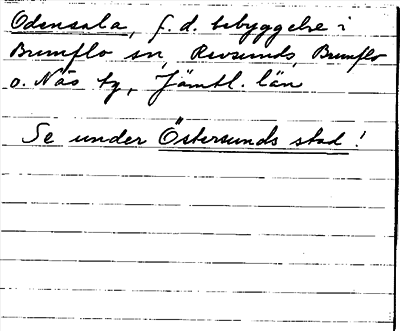 Odensala, f. d. bebyggelse i
Brunflo sn, Revsunds, Brunflo
o. Näs tg, Jämtl. län
Se under Östersunds stad!